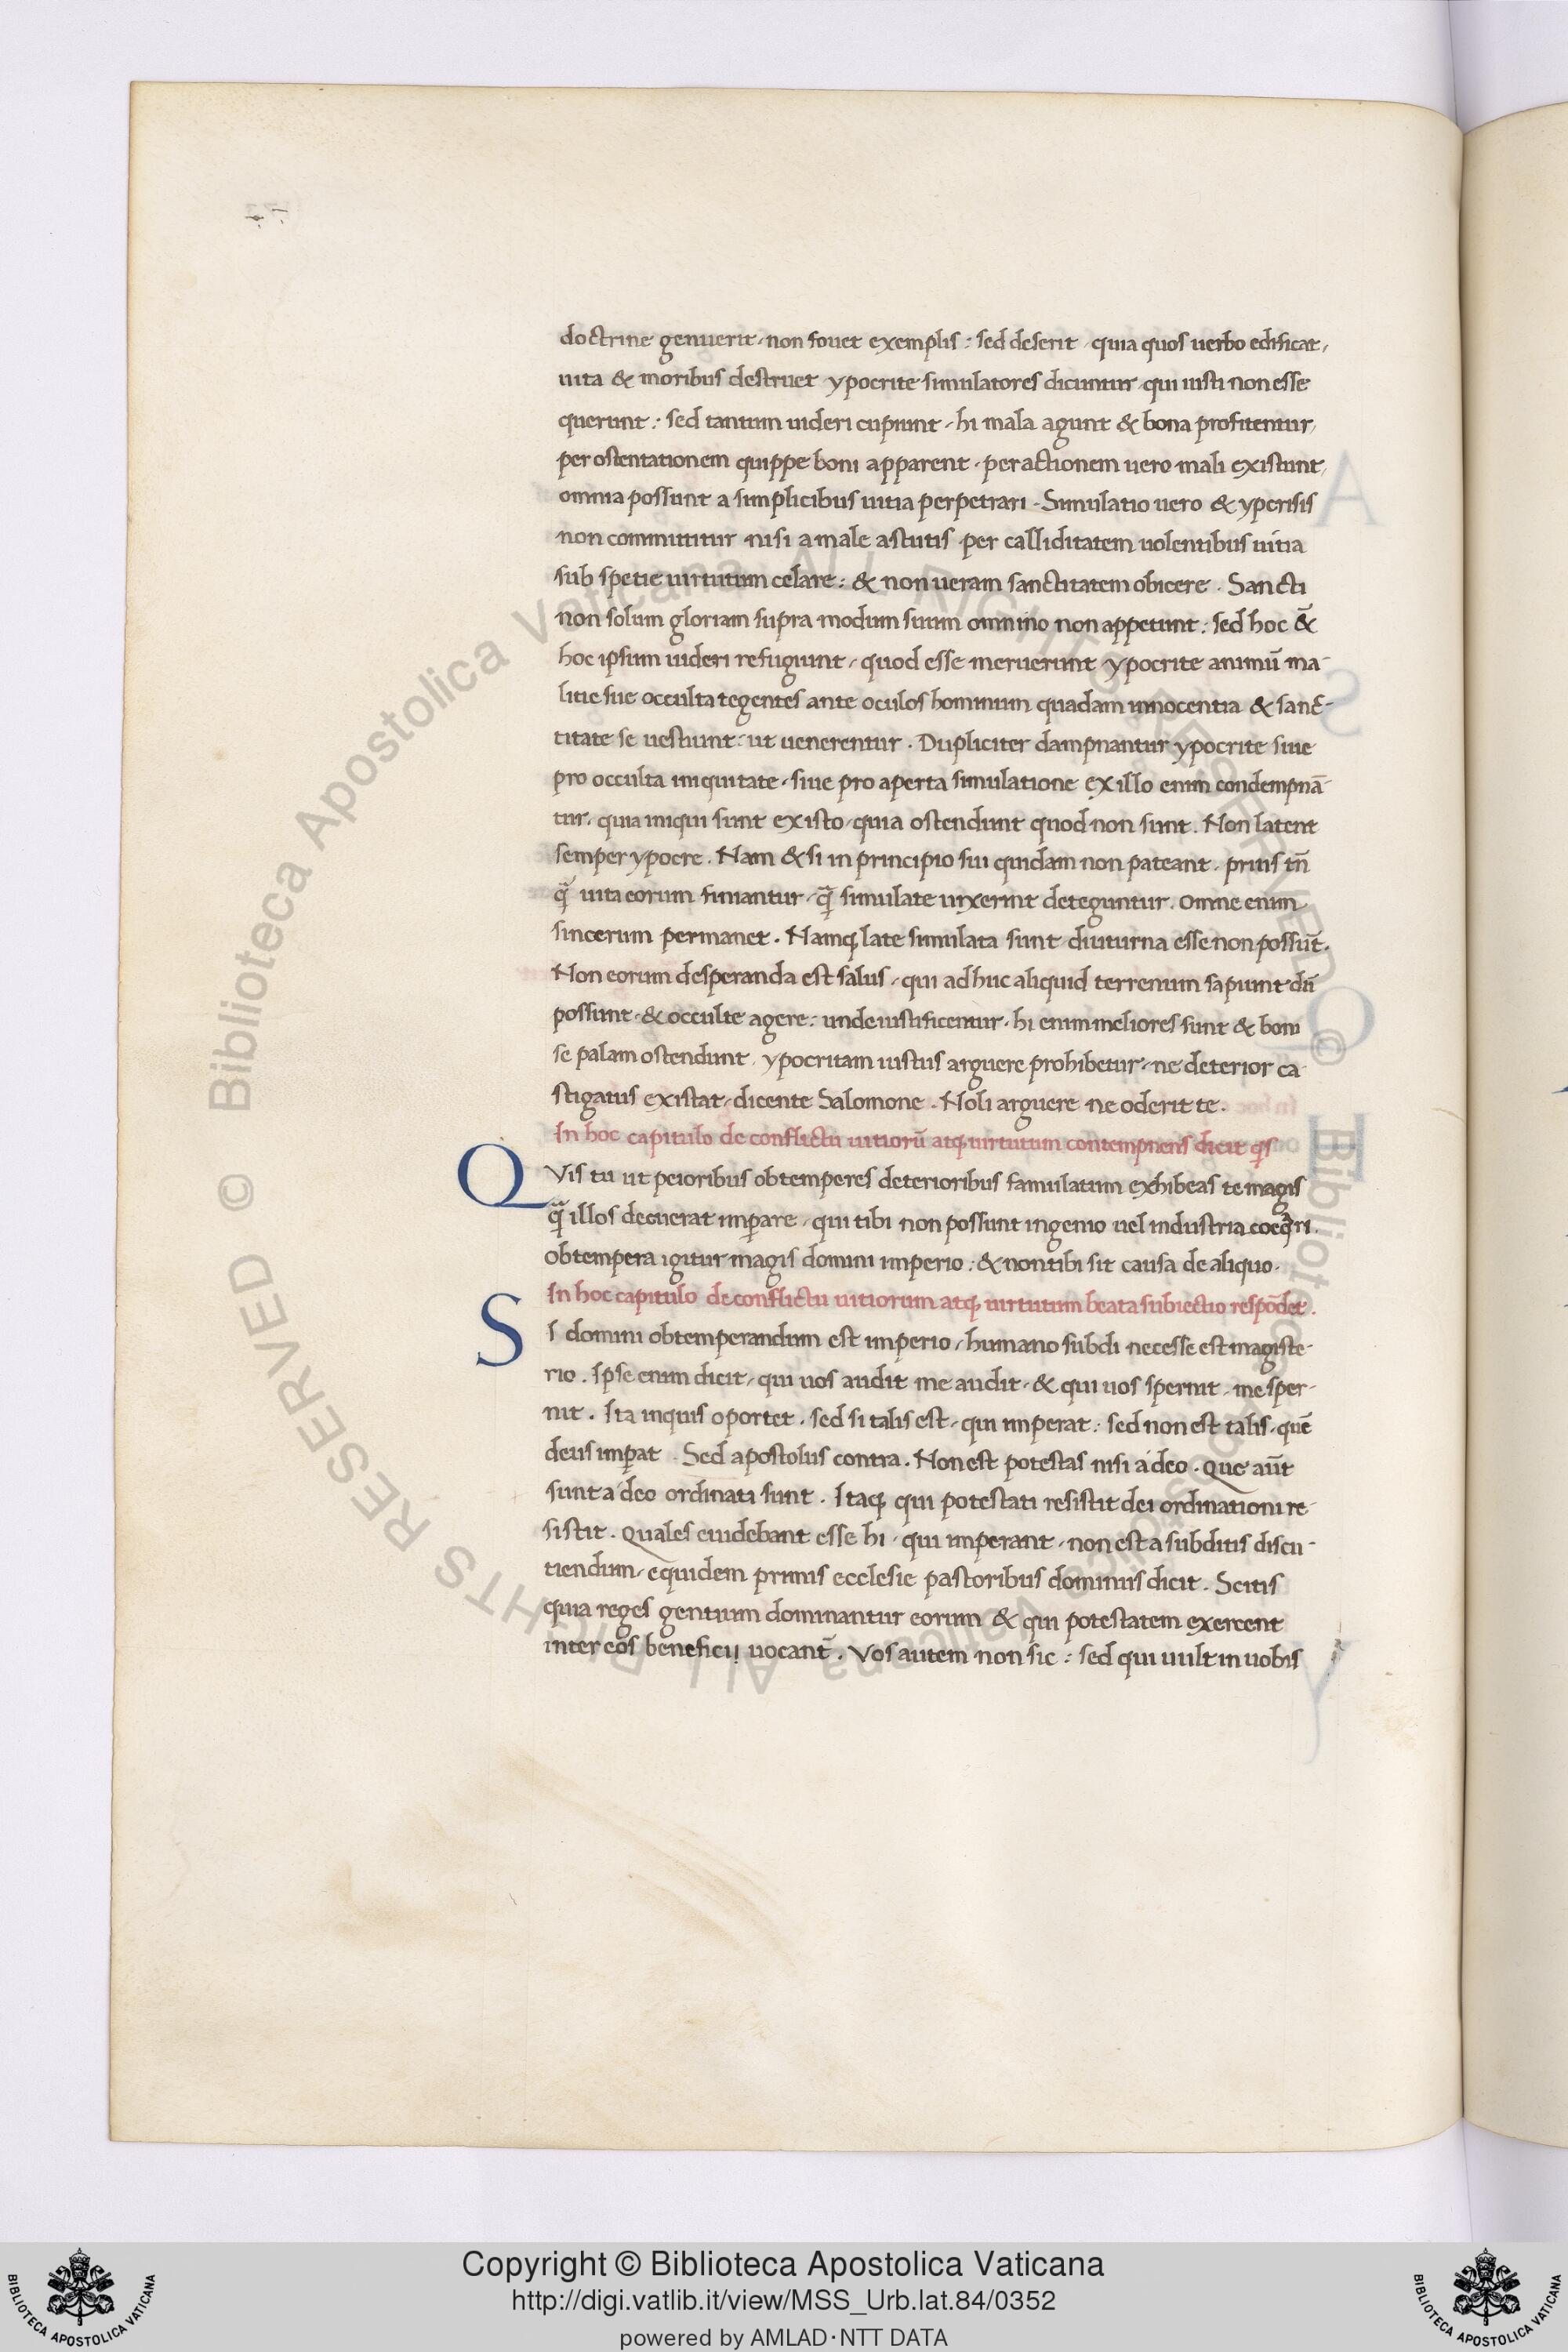 doctrine genuerit, non fouet exemplis: sed deserit, quia quos uerbo edificat,
uita & moribus destruet ypocrite simulatores dicuntur qui iusti non esse
querunt: sed tantum uideri cupiunt, hi mala agunt & bona profitentur,
per ostentationem quippe boni apparent, per actionem uero mali existunt,
omnia possunt a simplicibus uitia perpetrari. Simulatio uero & yperisis
non committitur nisi a male astutis per calliditatem uolentibus uitia
sub spetie uirtutum celare: & non ueram sanctitatem obicere. Sancti
non solum gloriam supra modum suum omnino non appetunt: sed hoc &̄
hoc ipsum uideri refugiunt, quod esse meruerunt ypocrite animū ma-
litie sue occulta tegentes ante oculos hominum quadam innocentia & sanc-
titate se uestiunt: ut uenerentur. Dupliciter dampnantur ypocrite siue
pro occulta iniquitate, siue pro aperta simulatione ex illo enim condempnā-
tur, quia iniqui sunt ex isto, quia ostendunt quod non sunt. Non latent
semper ypocre. Nam & si in principio sui quidam non pateant, prius tn̄
q̄ uita eorum finiantur, q̄ simulate uixerint deteguntur. Omne enim
sincerum permanet. Namq; late simulata sunt diuturna esse non possūt.
Non eorum desperanda est salus, qui adhuc aliquid terrenum sapiunt dū
possunt, & occulte agere: unde iustificentur, hi enim meliores sunt & boni
se palam ostendunt, ypocritam iustus arguere prohibetur, ne deterior ca-
stigatus existat, dicente Salomone. Noli arguere ne oderit te.
In hoc capitulo de conflictu uitiorū atq; uirtutum contempnens dicit
QVis tu ut peioribus obtemperes deterioribus famulatum exhibeas te magis
q̄ illos decuerat imperare, qui tibi non possunt ingenio uel industria
obtempera igitur magis domini imperio: & non tibi sit causa de aliquo.
In hoc capitulo de conflictu uitiorum atq; uirtutum beata subiectio respōdet.
SI domini obtemperandum est imperio, humano subdi necesse est magiste-
rio. Ipse enim dicit, qui uos audit me audit, & qui uos spernit, me sper-
nit. Ita inquis oportet, sed si talis est, qui imperat: sed non est talis, quē
deus imp̄at. Sed apostolus contra. Non est potestas nisi a deo. Que aūt
sunt a deo ordinati sunt. Itaq; qui potestati resistit dei ordinationi re-
sistit. Quales euidebant esse hi, qui imperant, non est a subditis discu-
tiendum, equidem primis ecclesie pastoribus dominus dicit. Scitis
quia reges gentium dominantur eorum & qui potestatem exercent
inter eos beneficij uocant̄. Vos autem non sic: sed qui uult in uobis
Copyright © Biblioteca Apostolica Vaticana
http://digi.vatlib.it/view/MSS_Urb.lat.84/0352
powered by AMLAD·NTT DATA